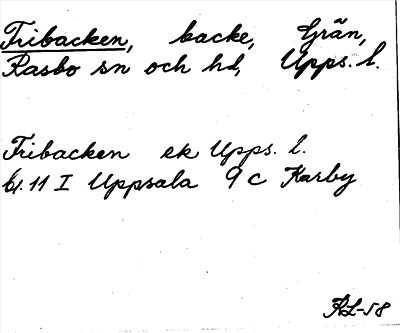 Fribacken, backe, Grän,
Rasbo sn och hd, Upps. l.
Fribacken ek Upps. l.
bl. 11 I Uppsala 9 c Karby
AL-58